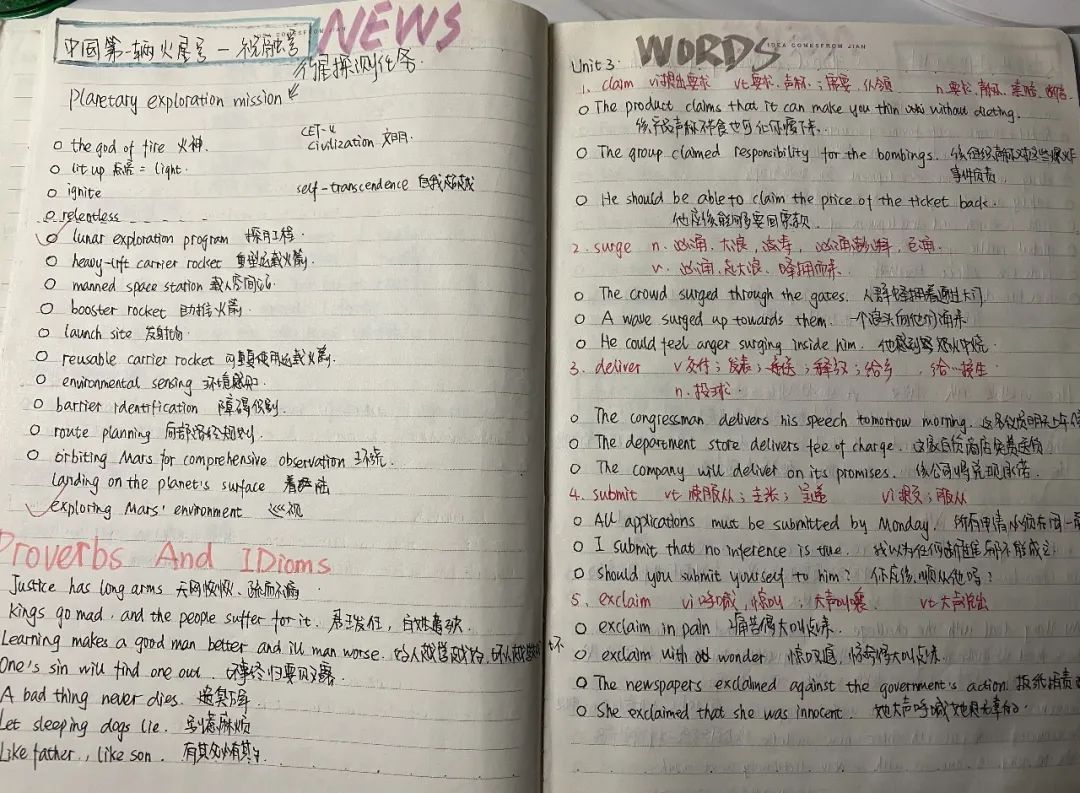 中国第一辆火星车—祝融号
NEWS
行星探测任务.
Planetary exploration mission
the god of fire 火神.
CET-4
civilization 文明.
lit up 点亮 = light.
ignite
self-transcendence 自我超越
relentless
lunar exploration program 探月工程.
heavy-lift carrier rocket 重型运载火箭.
manned space station 载人空间站.
booster rocket 助推火箭.
launch site 发射场
reusable carrier rocket 可重复使用运载火箭.
environmental sensing 环境感知.
barrier identification 障碍识别.
route planning 局部路径规划.
orbiting Mars for comprehensive observation 环绕.
landing on the planet's surface 着陆
exploring Mars' environment 巡视
Proverbs And IDioms
Justice has long arms 天网恢恢、疏而不漏
Kings go mad, and the people suffer for it. 君王发狂，百姓遭殃.
Learning makes a good man better and ill man worse.
One's sin will find one out.
A bad thing never dies. 遗臭万年.
Let sleeping dogs lie.
Like father, like son. 有其父必有其子
WORDS
IDEA COMESFROM JIAN
Unit 3.
1. claim vi提出要求 vt要求、声称；需要、认领 n.要求、声称、索赔、断言
The product claims that it can make you thin without dieting.
该产品声称不节食也可让你瘦下来.
The group claimed responsibility for the bombings. 该组织声称对这些爆炸
事件负责
He should be able to claim the price of the ticket back.
他应该能够要回票款.
2. surge n. 汹涌、大浪、波涛、汹涌澎湃，
v. 汹涌、起大浪、蜂拥而来.
The crowd surged through the gates. 人群蜂拥着通过大门
A wave surged up towards them. 一个浪头向他们涌来
He could feel anger surging inside him. 他感到怒火中烧.
3. deliver v交付；发表；递送；释放；给予，给…接生.
n.投球.
The congressman delivers his speech tomorrow morning. 这名议员明天上午
The department store delivers fee of charge. 这家百货商店免费送货
The company will deliver on its promises. 该公司将兑现承诺.
4. submit vt 使服从；主张；呈递 vi提交；服从
All applications must be submitted by Monday. 所有申请必须在周一前
I submit that no inference is true. 我以为任何断推都不能成立
Should you submit yourself to him? 你应该顺从他吗?
5. exclaim vi呼喊，惊叫；大声叫嚷. vt大声说出
exclaim in pain 痛苦得大叫起来.
exclaim with wonder 惊叹道，惊奇得大叫起来
The newspapers exclaimed against the government's action. 报纸指责
She exclaimed that she was innocent. 她大声呼喊她是无辜的.